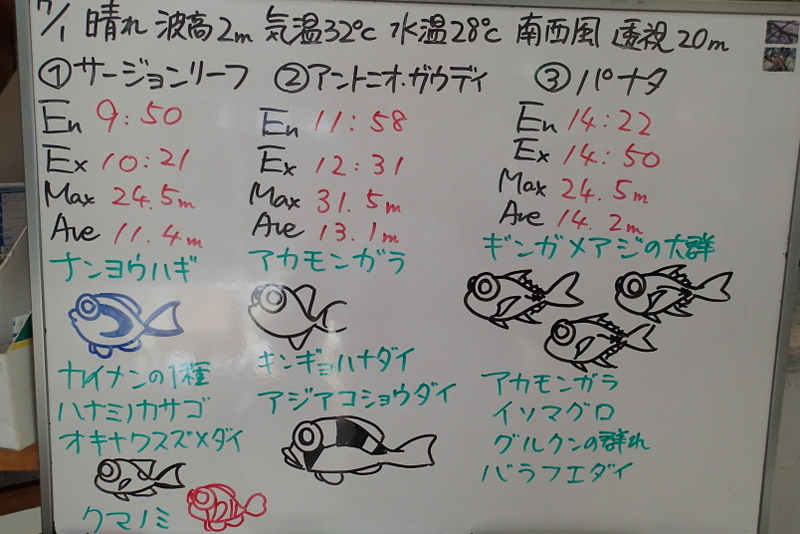 7/1 晴れ 波高2m 気温32℃ 水温28℃ 南西風 透視20m
①サージョンリーフ
En 9:50
Ex 10:21
Max 24.5m
Ave 11.4m
ナンヨウハギ
ナレイナンの1種
ハナミノカサゴ
オキナワスズメダイ
クマノミ
②アントニオ・ガウディ
En 11:58
Ex 12:31
Max 31.5m
Ave 13.1m
アカモンガラ
キンギョハナダイ
アジアコショウダイ
③パナタ
En 14:22
Ex 14:50
Max 24.5m
Ave 14.2m
ギンガメアジの大群
アカモンガラ
イソマグロ
グルクンの群れ
バラフエダイ